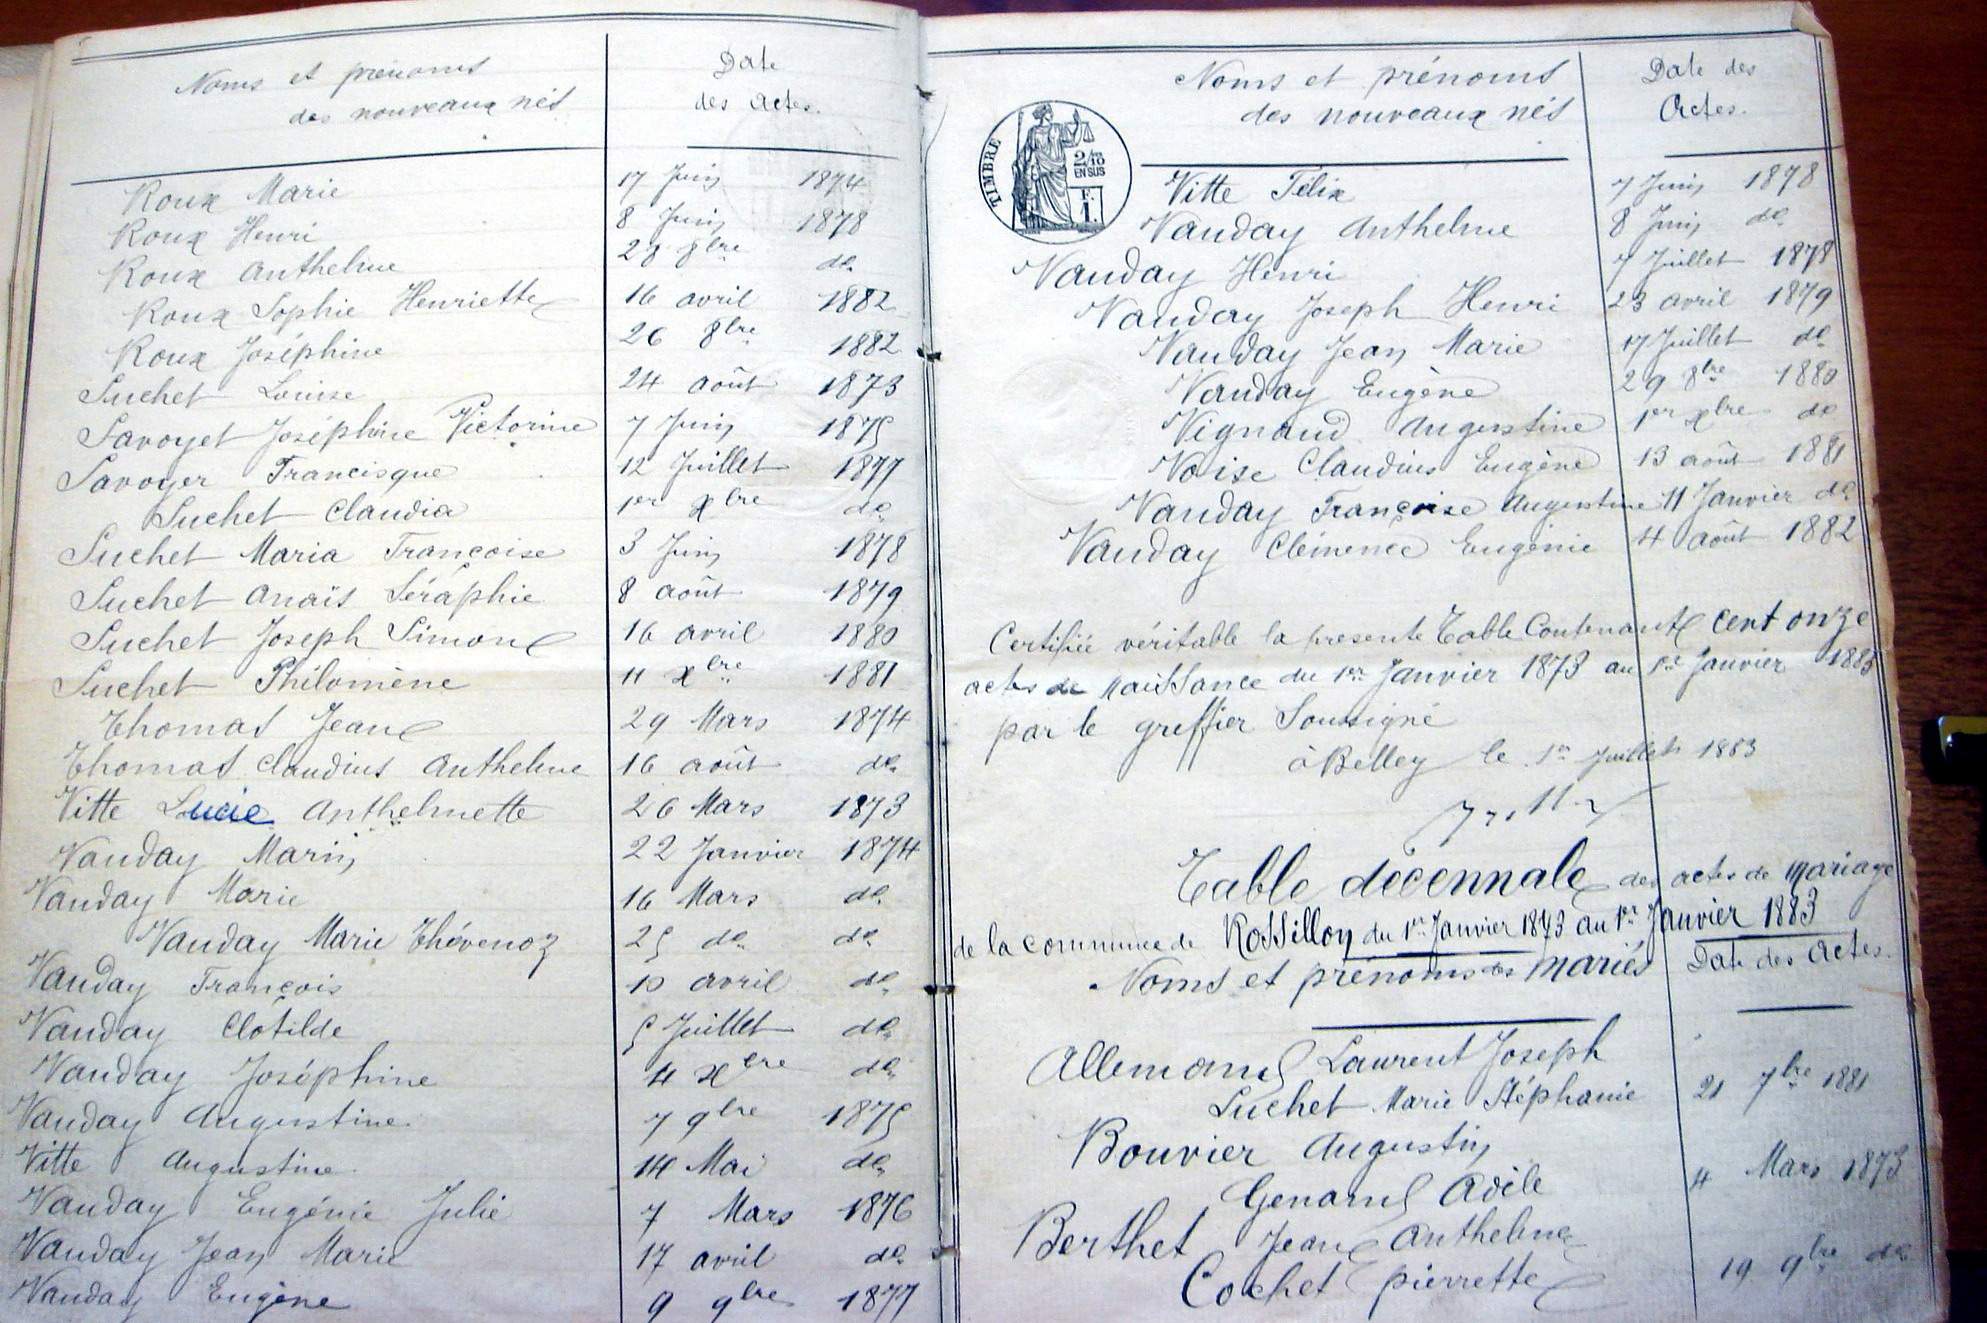 Noms et prénoms
des nouveaux nés
Date
des actes.
Roux Marie 17 Juin 1874
Roux Henri 8 Juin 1878
Roux Anthelme 28 8bre do
Roux Sophie Henriette 16 avril 1882
Roux Joséphine 26 8bre 1882
Suchet Louise 24 août 1873
Savoyet Joséphine Victorine 7 Juin 1875
Savoyer Francisque 12 Juillet 1877
Suchet Claudia 1er xbre do
Suchet Maria Françoise 3 Juin 1878
Suchet Anaïs Séraphie 8 août 1879
Suchet Joseph Simon 16 avril 1880
Suchet Philomène 11 xbre 1881
Thomas Jean 29 Mars 1874
Thomas Claudius Anthelme 16 août do
Vitte Lucie Anthelmette 26 Mars 1873
Vauday Marin 22 Janvier 1874
Vauday Marie 16 Mars do
Vauday Marie Thévenoz 25 do do
Vauday François 10 avril do
Vauday Clotilde 5 Juillet do
Vauday Joséphine 4 xbre do
Vauday Augustine 7 9bre 1875
Vitte Augustine 14 Mai do
Vauday Eugénie Julie 7 Mars 1876
Vauday Jean Marie 17 avril do
Vauday Eugène 9 9bre 1877
Noms et prénoms
des nouveaux nés
Date des
Actes.
TIMBRE
2/10
EN SUS
F.
1.
Vitte Félix 7 Juin 1878
Vauday Anthelme 8 Juin do
Vauday Henri 7 Juillet 1878
Vauday Joseph Henri 23 avril 1879
Vauday Jean Marie 17 Juillet do
Vauday Eugène 29 8bre 1880
Vignaud Augustine 1er xbre do
Voise Claudius Eugène 13 août 1881
Vauday Françoise Augustine 11 Janvier do
Vauday Clémence Eugénie 4 août 1882
Certifiée véritable la presente Table Contenant cent onze
actes de naissance du 1er Janvier 1873 au 1er Janvier 1883
par le greffier Soussigné
à Belley le 1er Juillet 1883
Table décennale des actes de mariage
de la commune de Rossillon du 1er Janvier 1873 au 1er Janvier 1883
Noms et prénoms des mariés Date des Actes.
Allemand Laurent Joseph
Suchet Marie Stéphanie 21 7bre 1881
Bouvier Augustin
Genand Adèle 4 Mars 1873
Berthet Jean Anthelme
Cochet pierrette 19 9bre do